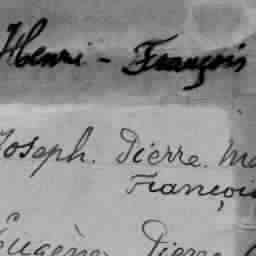 Henri - François
Joseph. Pierre.
François
Eugène Pierre